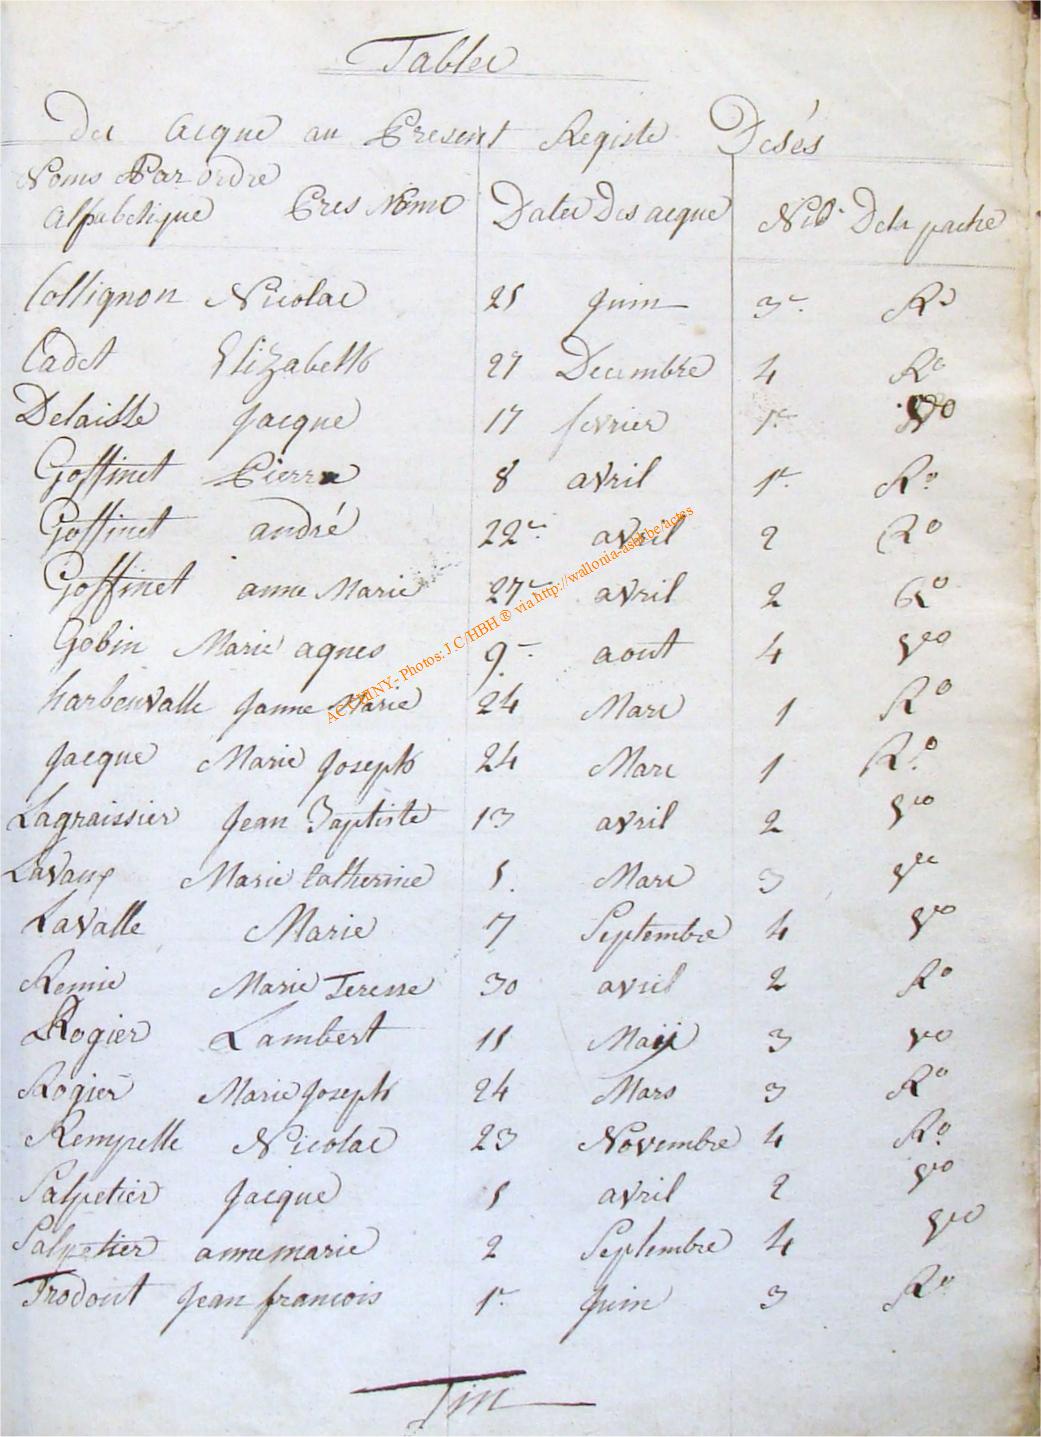 Tables
Des Acque au Present Registe Desés
Noms Par ordre
Alphabetique Pres Noms Dates Des acque No De la pache
Collignon Nicolas 25 Juin 3e Ro
Cadet Elizabeth 27 Decembre 4 Ro
Delaisse Jacque 17 fevrier 1e Vo
Goffinet Pierre 8 avril 1e Ro
Goffinet andré 22e avril 2 Ro
Goffinet anne Marie 27e avril 2 Ro
Gobin Marie agnes 9e aout 4 Vo
harbenvalle Janne Marie 24 Mars 1 Ro
Jacque Marie Joseph 24 Mars 1 Ro
Lagraissier Jean Baptiste 13 avril 2 Vo
Lavaux Marie Catherine 5 Mars 3 Vo
Lavalle Marie 7 Septembre 4 Vo
Remie Marie Teresse 30 avril 2 Ro
Rogier Lambert 15 Maij 3 vo
Rogier Marie Joseph 24 Mars 3 Ro
Rempelle Nicolas 23 Novembre 4 Ro
Salpetier Jacque 5 avril 2 Vo
Salpetier anne marie 2 Septembre 4 Vo
Trodout Jean francois 1e Juin 3 Ro
Fin
Photos: J.C/HBH ® via http://wallonia-asbl.be/actes